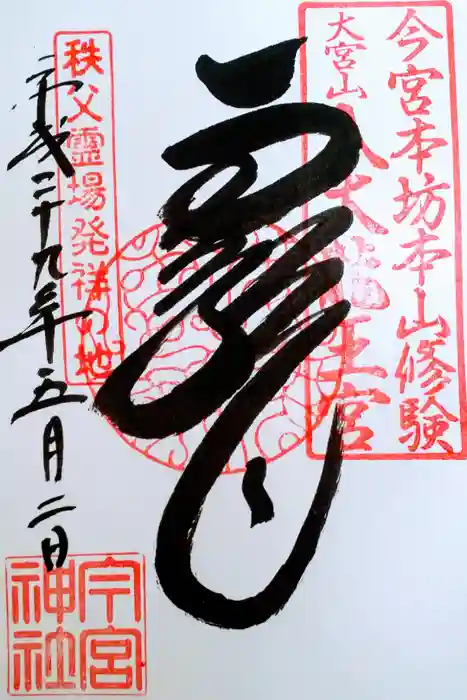 今宮本坊本山修験
大宮山八大龍王宮
龍
秩父霊場発祥の地
平成二十九年五月二日
今宮
神社